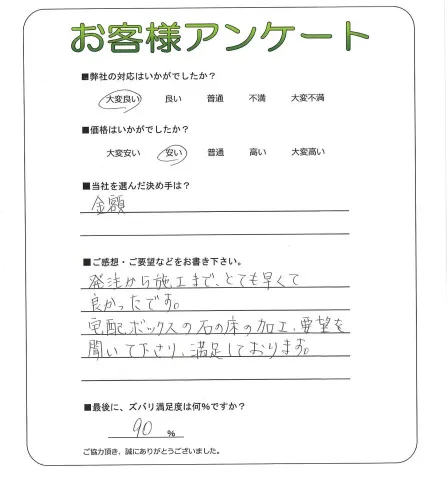 お客様アンケート
■弊社の対応はいかがでしたか?
大変良い 良い 普通 不満 大変不満
■価格はいかがでしたか?
大変安い 安い 普通 高い 大変高い
■当社を選んだ決め手は?
金額
■ご感想・ご要望などをお書き下さい。
発注から施工まで、とても早くて
良かったです。
宅配ボックスの石の床の加工、要望を
聞いて下さり、満足しております。
■最後に、ズバリ満足度は何%ですか?
90 %
ご協力頂き、誠にありがとうございました。